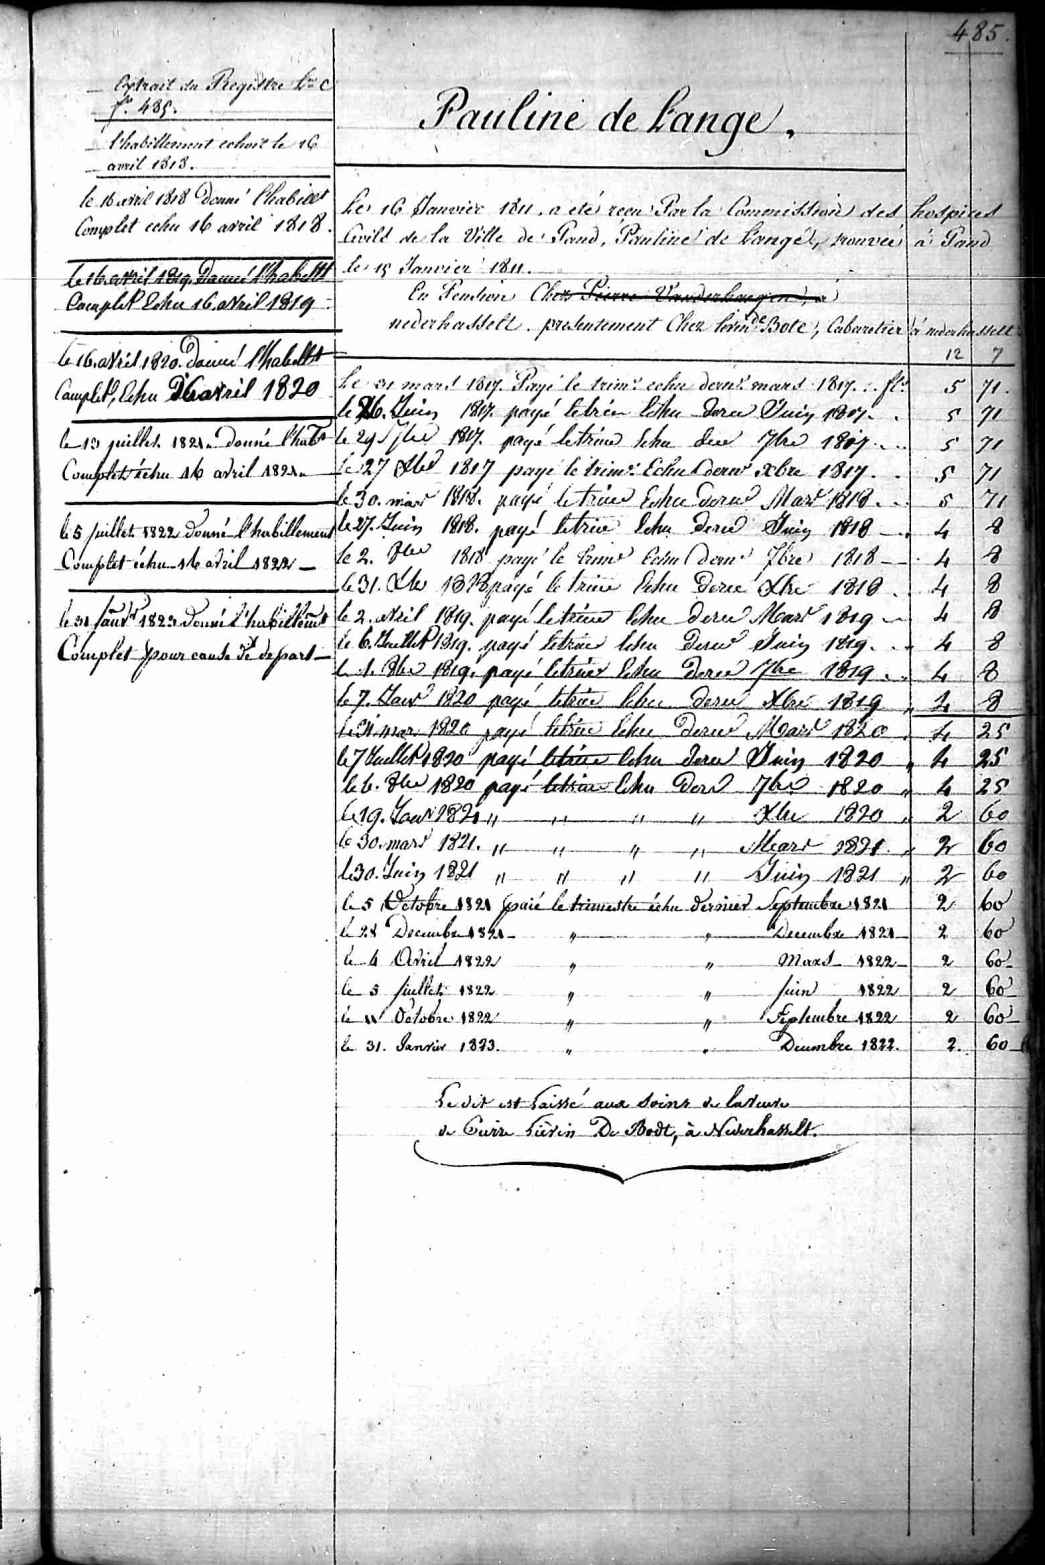 485.
Extrait du Registre
fo 485.
l'habillement echoit le 16
avril 1818.
le 16 avril 1818 Donné l'habillt
Complet echu 16 avril 1818.
le 16 avril 1819 Donné l'habillt
Complet Echu 16 avril 1819
le 16 avril 1820 donné l'habillt
Complet, Echu 16 avril 1820
le 13 juillet 1821 donné l'habt
Complet échu 16 avril 1821
le 5 juillet 1822 Donné l'habillement
Complet échu 16 avril 1822
le 31 Janvr 1823 Donné l'habillemt
Complet pour cause de depart
Pauline de Lange.
Le 16 Janvier 1811. a été recu Par la Commission des hospices
Civils de la Ville de Gand, Pauline de Lange, trouvée à Gand
le 15 Janvier 1811.
En Pension Chez Pierre à
nederhasselt. presentement Chez de Bote, Cabaretier à nederhasselt
12 7
Le 31 mars 1817. Payé le trimr echu dernr mars 1817. fl. 5 71.
le 26. Juin 1817 payé letrim Echu derer Juin 1817. 5 71
le 29 7bre 1817. payé letrim Echu der 7bre 1817. 5 71
le 27 Xbre 1817 payé le trimr Echu dernr Xbre 1817. 5 71
le 30. mars 1818. payé letrim Echu derer Mars 1818. 5 71
le 27. Juin 1818. payé letrim echu derer Juin 1818 4 8
le 2. 8bre 1818 payé le trimr Echu dernr 7bre 1818 4 8
le 31. Xbre 1818 payé le trim Echu derer Xbre 1818 4 8
le 2. avril 1819. payé letrim Echu derer Mars 1819 4 8
le 6. Juillet 1819. payé letrim Echu derer Juin 1819. 4 8
le 1. 8bre 1819. payé letrim Echu derer 7bre 1819 4 8
le 7. Janr 1820 payé letrim Echu derer Xbre 1819 4 8
le 31 mars 1820 payé letrim Echu derer Mars 1820 4 25
le 7 Juillet 1820 payé letrim Echu derer Juin 1820 4 25
le 6. 8bre 1820 payé letrim Echu derer 7bre 1820 4 25
le 19. Janr 1821 " " " " Xbre 1820 " 2 60
le 30. mars 1821. " " " " Mars 1821. " 2 60
le 30. Juin 1821 " " " " Juin 1821 " 2 60
le 5 Octobre 1821 paié le trimestre échu dernier Septembre 1821 2 60
le 28 Decembre 1821 " " Decembre 1821 2 60
le 4 Avril 1822 " " Mars 1822 2 60
le 5 juillet 1822 " " juin 1822 2 60
le 11 Octobre 1822 " " Septembre 1822 2 60
le 31. Janvier 1823. " " Decembre 1822. 2. 60
Ledit est Laissé aux soins de la veuve
de Pierre Liévin De Bodt, à Nederhasselt.